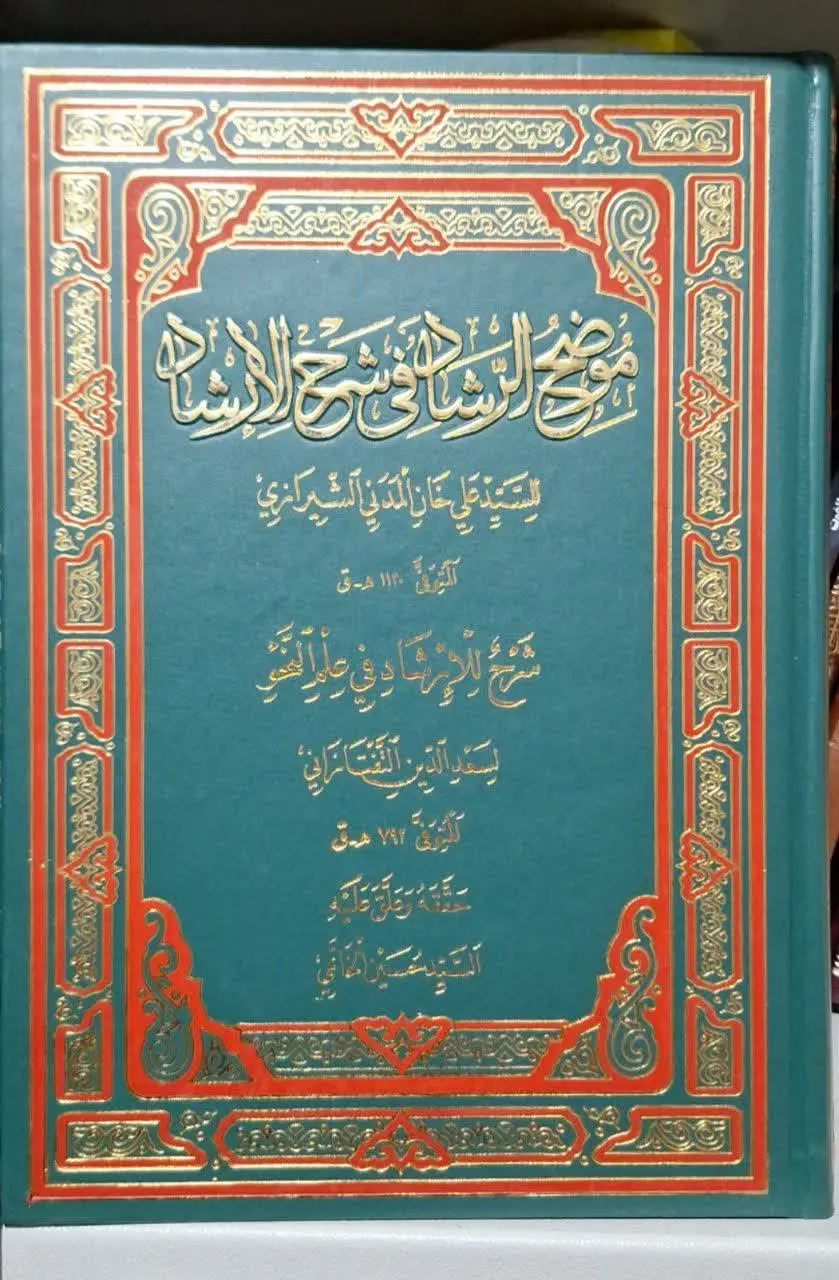 مُوَضِّحُ الرَّشَادِ فِي شَرْحِ الإِرْشَادِ
لِلسَّيِّدْ عَلِي خَانِ الْمَدَنِي الشِّيرَازِي
الْمُتَوَفَّى ١١٢٠ هـ.ق
شَرْحٌ لِلْإِرْشَادِ فِي عِلْمِ النَّحْوِ
لِسَعْدِ الدِّينِ التَّفْتَازَانِي
الْمُتَوَفَّى ٧٩٢ هـ.ق
حَقَّقَهُ وَعَلَّقَ عَلَيْهِ
السَّيِّد حُسَيْن